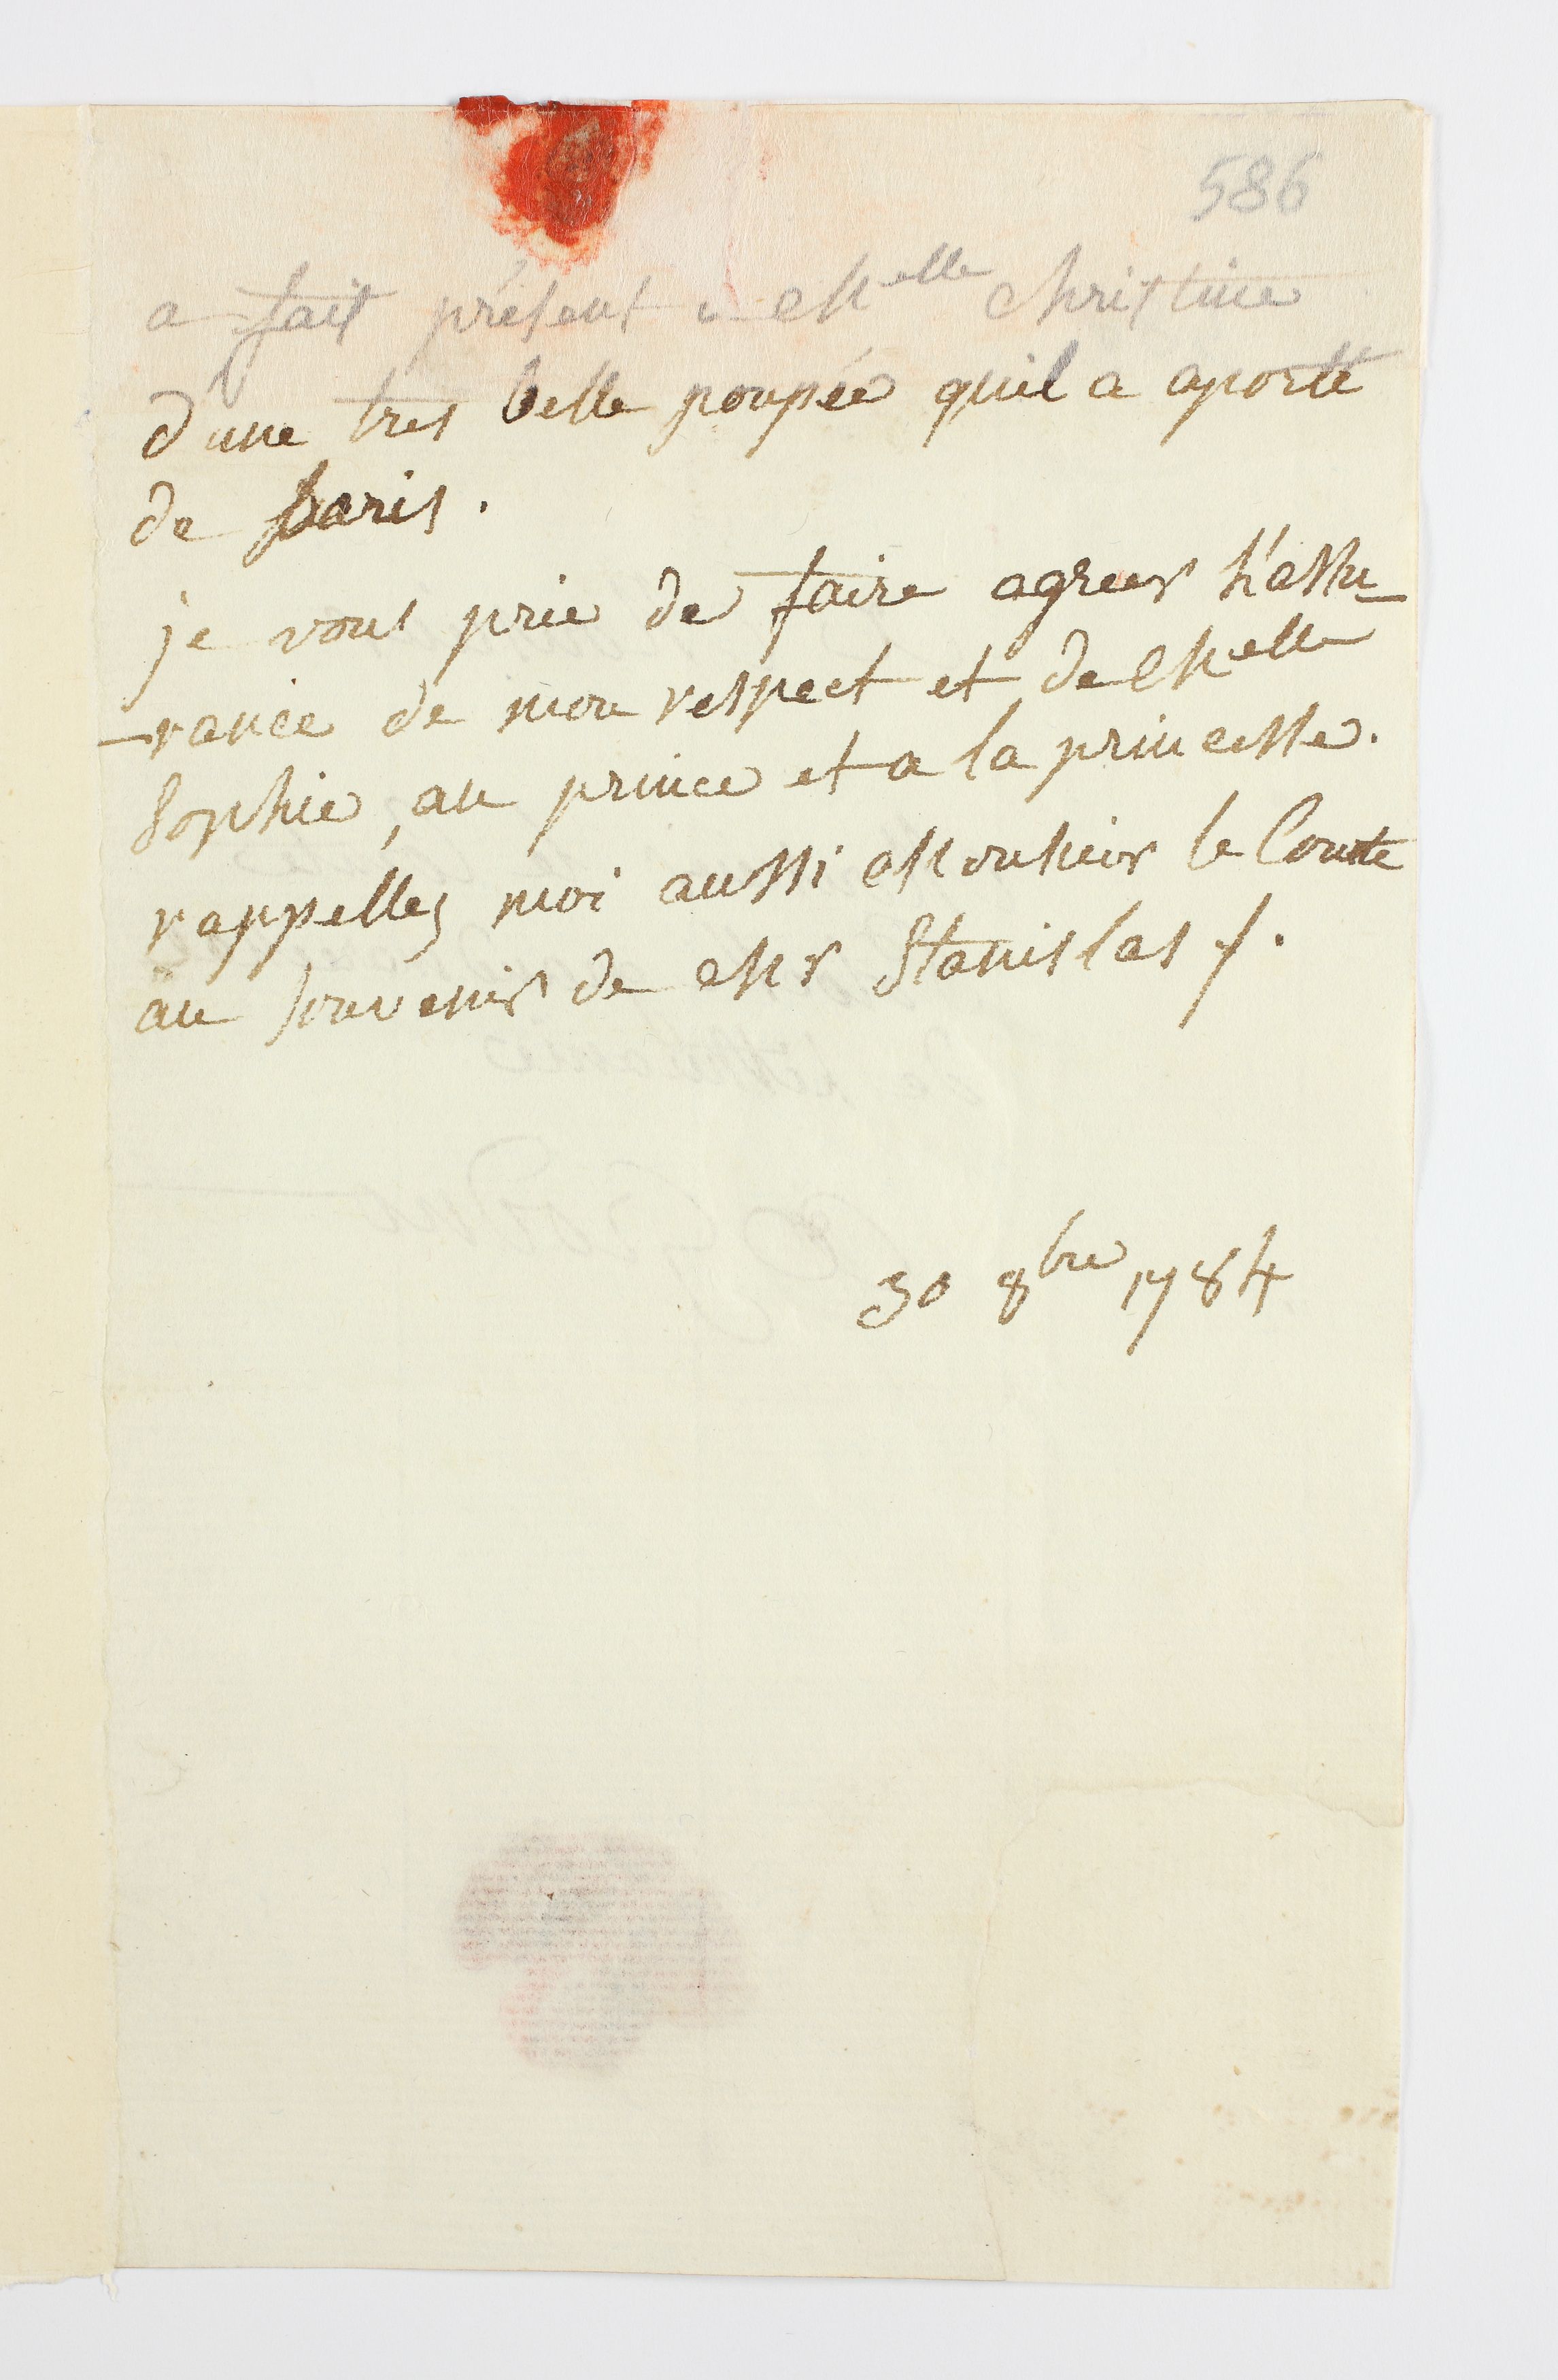 586
a fait présent a Melle Christine
d'une tres belle poupée quil a aporté
de Paris.
je vous prie de faire agreer l'assu-
-rance de mon respect et de Melle
Sophie, au prince et a la princesse.
rappellez moi aussi Monsieur le Comte
au souvenir de Mr Stanislas /.
30 8bre 1784